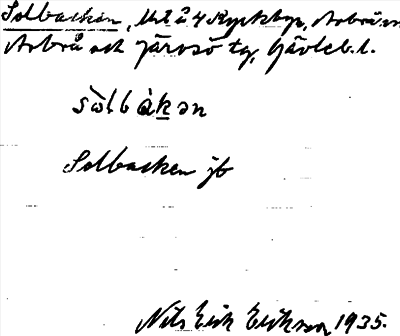 Solbacken, Uel å 4 Kyrkbyn, Arbrå sn
Arbrå och Järvsö tg, Gävleb. l.
sòlbàkən
Solbacken jb
Nils Erik Eriksson 1935.